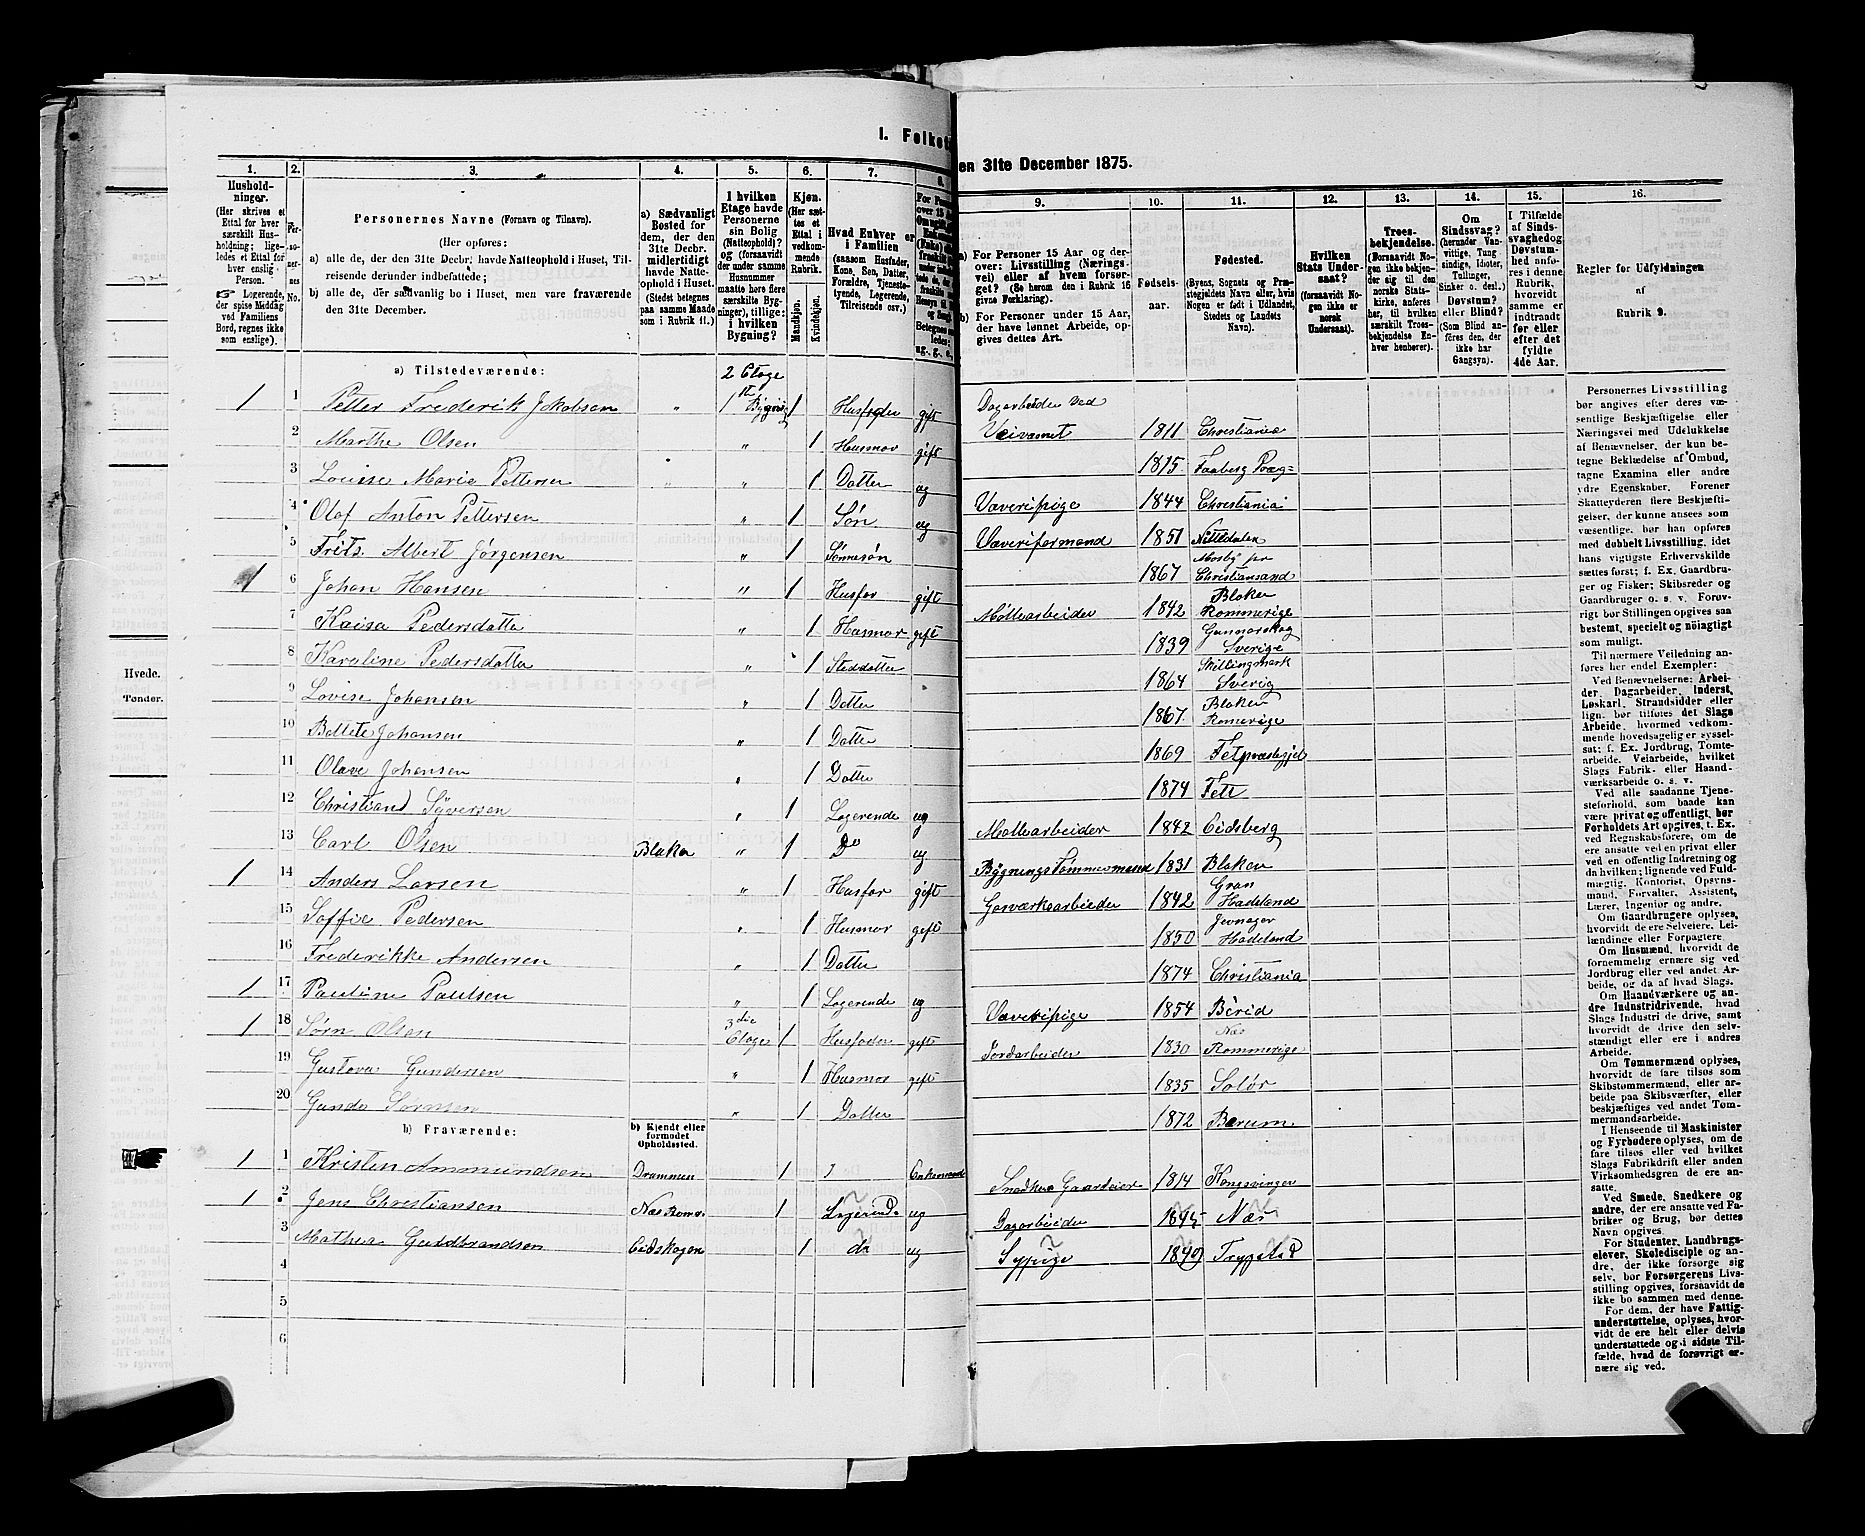 I. Folket
en 31te December 1875.
1. 2. 3. 4. 5. 6. 7. 8. 9. 10. 11. 12. 13. 14. 15. 16.
Husholdninger. (Her skrives et Ettal for hver særskilt Husholdning; ligeledes et Ettal for hver enslig Person. ☞ Logerende, der spise Middag ved Familiens Bord, regnes ikke som enslige).
Personernes No.
Personernes Navne (Fornavn og Tilnavn).
(Her opføres:
a) alle de, der den 31te Decbr. havde Natteophold i Huset, Tilreisende derunder indbefattede;
b) alle de, der sædvanlig bo i Huset, men vare fraværende den 31te December.
a) Sædvanligt Bosted for dem, der den 31te Decbr. midlertidigt havde Natteophold i Huset. (Stedet betegnes paa samme Maade som i Rubrik 11.)
I hvilken Etage havde Personerne sin Bolig (Natteophold)? og (forsaavidt der under samme Husnummer maatte høre flere særskilte Bygninger), tillige: i hvilken Bygning?
Kjøn. (Her sættes et Ettal i vedkommende Rubrik. Mandkjøn. Kvindekjøn.
Hvad Enhver er i Familien (saasom Husfader, Kone, Søn, Datter, Forældre, Tjenestetyende, Logerende, Tilreisende osv.)
a) For Personer 15 Aar og derover: Livsstilling (Næringsvei) eller af hvem forsørget? (Se herom den i Rubrik 16 givne Forklaring).
b) For Personer under 15 Aar, der have lønnet Arbeide, opgives dettes Art.
Fødselsaar.
Fødested. (Byens, Sognets og Præstegjeldets Navn, eller, hvis Nogen er født i Udlandet, Stedets og Landets Navn).
Hvilken Stats Undersaat? (forsaavidt Nogen ikke er norsk Undersaat).
Troesbekjendelse. (Forsaavidt Nogen ikke bekjender sig til den norske Statskirke, anføres her, til hvilken særskilt Troesbekjendelse Enhver henhører).
Om Sindssvag? (herunder Vanvittige, Tungsindige, Idioter, Tullinger, Sinker o. desl.) Døvstum? eller Blind? (Som Blind anføres den, der ikke har Gangsyn).
I Tilfælde af Sindssvaghed og Døvstumhed anføres i denne Rubrik, hvorvidt samme er indtraadt før eller efter det fyldte 4de Aar.
Regler for Udfyldningen af Rubrik 9.
a) Tilstedeværende:
2 Etage
1 1 Petter Frederik Jakobsen " 1ste Bygning 1 Husfader gift Dagarbeider ved Veivæsnet 1811 Christiania
2 Marthe Olsen " 1 Husmor gift 1815 Faaberg Præg=
3 Louise Marie Pettersen " " 1 Datter ug Væveripige 1844 Christiania
4 Olaf Anton Pettersen " 1 Søn ug Væveriformand 1851 Nittedalen
5 Frits Albert Jørgensen " 1 Sønnesøn 1867 Mosby pr Christiansand
1 6 Johan Hansen " 1 Husfar gift Møllearbeider 1842 Blaker Rommerige
7 Kaisa Pedersdatter " 1 Husmor gift 1839 Gunnarskog Sverige
8 Karoline Pedersdatter " 1 Steddatter 1864 Skillingmark Sverig
9 Lovise Johansen 1 Datter 1867 Blaker Romerige
10 Bollete Johansen " 1 Datter 1869 Fetpræstegjel
11 Olave Johansen " 1 Datter 1874 Fett
12 Christiand Syversen " 1 Logerende ug Møllearbeider 1842 Eidsberg
13 Carl Olsen Blaker " 1 Do ug Bygnings Tømmermand 1831 Blaker
1 14 Anders Larsen " 1 Husfar gift Gasværksarbeider 1842 Gran Hadeland
15 Soffie Pedersen " 1 Husmor gift 1850 Jevnager Hadeland
16 Frederikke Andersen " 1 Datter 1874 Christiania
1 17 Pauline Paulsen " 1 Logerende ug Væveripige 1854 Birid
1 18 Sørn Olsen 3die Etage 1 Husfader gift Jordarbeider 1830 Næs Rommerige
19 Gustava Gundersen " 1 Husmor gift 1835 Solør
20 Gunda Sørnsen " 1 Datter 1872 Bærum
b) Fraværende:
b) Kjendt eller formodet Opholdssted.
1 1 Kristen Ammundsen Drammen 1 Enkemand 1814 Kongsvinger
1 2 Jens Christiansen Næs Rom. 1 Logerende ug Dagarbeider 1845 Næs
3 Mathea Guldbrandsen Eidskogen 1 do ug Sypige 1849 Trygstad
4
5
6
Hvede.
Tønder.
Personernes Livsstilling bør angives efter deres væsentlige Beskjæftigelse eller Næringsvei med Udelukkelse af Benævnelser, der kun betegne Beklædelse af Ombud, tagne Examina eller andre ydre Egenskaber. Forener Skatteyderen flere Beskjæftigelser, der kunne ansees som væsentlige, bør han opføres med dobbelt Livsstilling, idet hans vigtigste Erhvervskilde sættes først; f. Ex. Gaardbruger og Fisker; Skibsreder og Gaardbruger o. s. v. Forøvrigt bør Stillingen opgives saa bestemt, specielt og nøiagtigt som muligt.
Til nærmere Veiledning anføres her endel Exempler:
Ved Benævnelserne: Arbeider, Dagarbeider, Inderst, Løskarl, Strandsidder eller lign. bør tilføies det Slags Arbeide, hvormed vedkommende hovedsagelig er sysselsat; f. Ex. Jordbrug, Tomtearbeide, Veiarbeide, hvilket Slags Fabrik- eller Haandværksarbeide o. s. v.
Ved alle saadanne Tjenesteforhold, som baade kan være privat og offentlig, bør Forholdets Art opgives, t. Ex. ved Regnskabsførere, om de ere ansatte ved en privat eller ved en offentlig Indretning og da hvilken; lignende ved Fuldmægtig, Kontorist, Opsynsmand, Forvalter, Assistent, Lærer, Ingeniør og andre.
Om Gaardbrugere oplyses, hvorvidt de ere Selveiere, Leilændinge eller Forpagtere
Om Husmænd, hvorvidt de fornemmelig ernære sig ved Jordbrug eller ved andet Arbeide, og da af hvad Slags.
Om Haandværkere og andre Industridrivende, hvad Slags Industri de drive, samt hvorvidt de drive den selvstændigt eller ere i andres Arbeide.
Om Tømmermænd oplyses, hvorvidt de fare tilsøs som Skibstømmermænd, eller arbeide paa Skibsværfter, eller beskjæftiges ved andet Tømmermandsarbeide.
I Henseende til Maskinister og Fyrbødere oplyses, om de fare tilsøs eller ved hvilket Slags Fabrikdrift eller anden Virksomhedsgren de ere ansatte.
Ved Smede, Snedkere og andre, der ere ansatte ved Fabriker og Brug, bør dettes Navn opgives.
For Studenter, Landbrugselever, Skoledisciple og andre, der ikke forsørge sig selv, bør Forsørgerens Livsstilling opgives, forsaavidt de ikke bo sammen med denne.
For dem, der have Fattigunderstøttelse, oplyses, hvorvidt de ere helt eller delvis understøttede og i sidste Tilfælde, hvad de forøvrigt ernære sig ved.